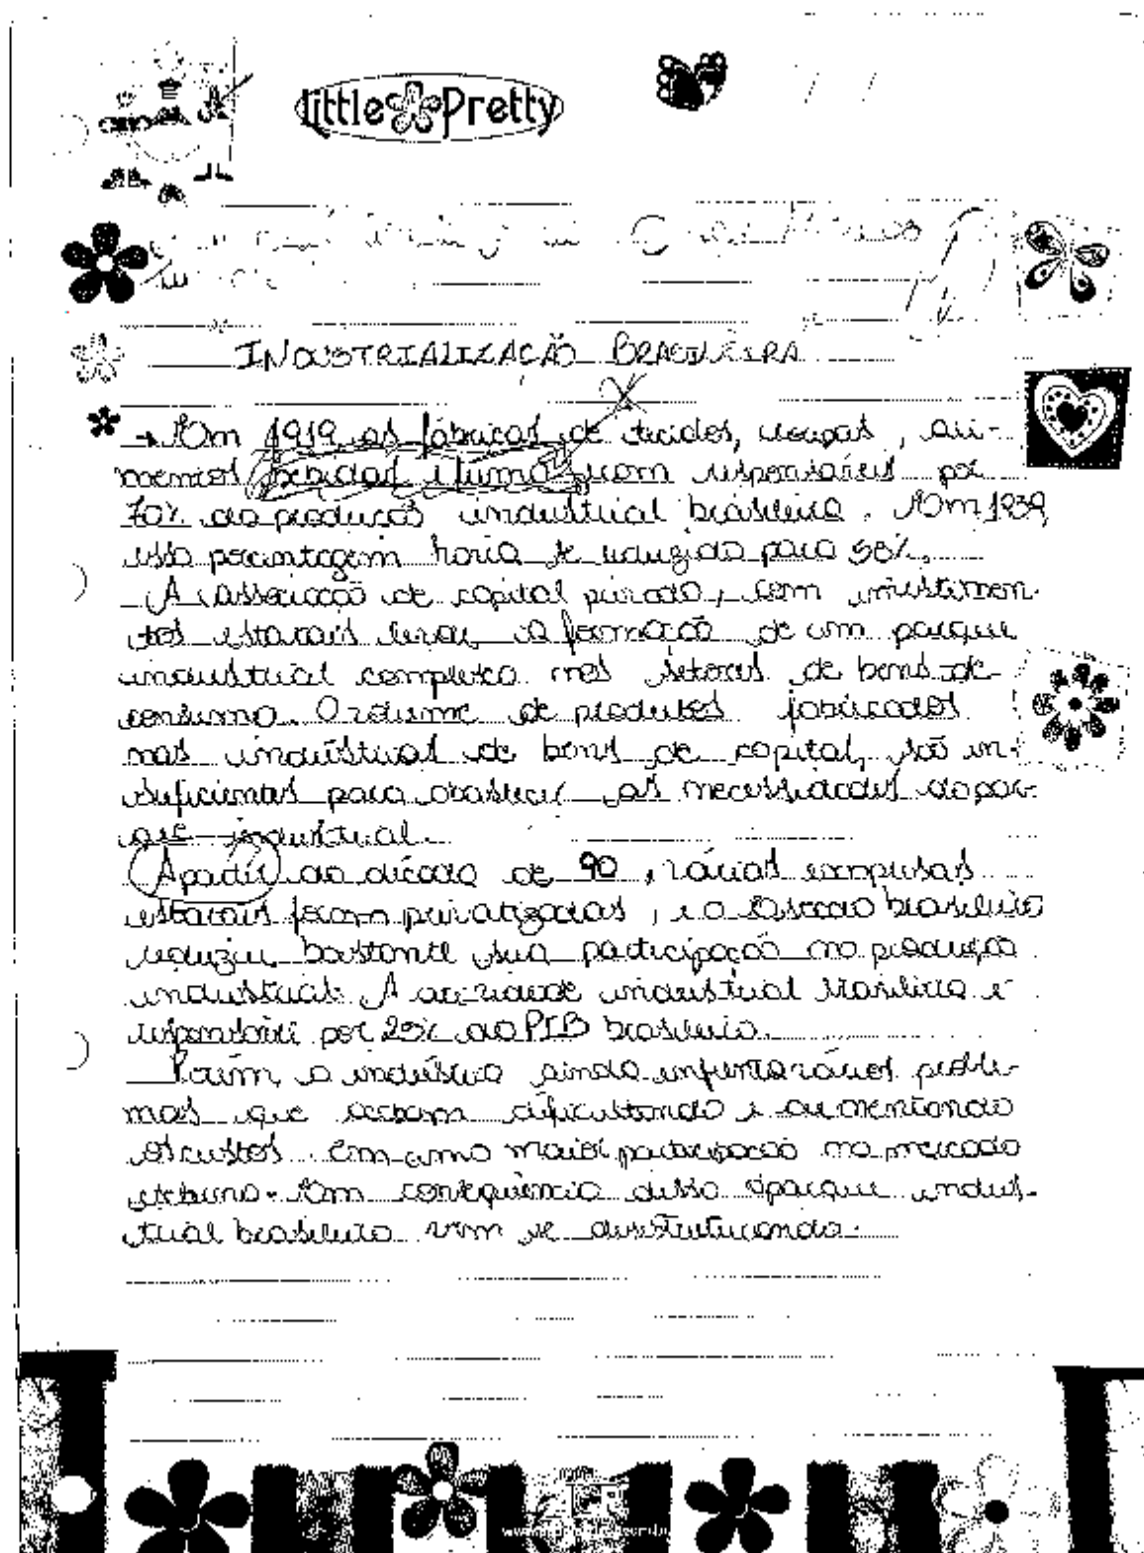 Little Pretty
INDUSTRIALIZAÇÃO BRASILEIRA
Em 1919 as fábricas de tecidos, roupas, ali-
mentos bebidas e fumo eram responsáveis por
70% da produção industrial brasileira. Em 1939,
essa porcentagem havia se reduzido para 58%.
A associação de capital privado, com investimen
tos estatais levou a formação de um parque
industrial completo nos setores de bens de
consumo. O volume de produtos fabricados
nas indústrias de bens de capital, são in-
suficientes para abastecer as necessidades do par-
que industrial.
Apartir da década de 90, várias empresas
estatais foram privatizadas, e o Estado brasileiro
reduziu bastante sua participação na produção
industrial. A atividade industrial brasileira é
responsável por 25% do PIB brasileiro.
Porém, a indústria ainda enfrenta vários proble-
mas que acabam dificultando e aumentando
os custos em uma maior participação no mercado
externo. Em consequência disso o parque indus-
trial brasileiro vem se desestruturando.